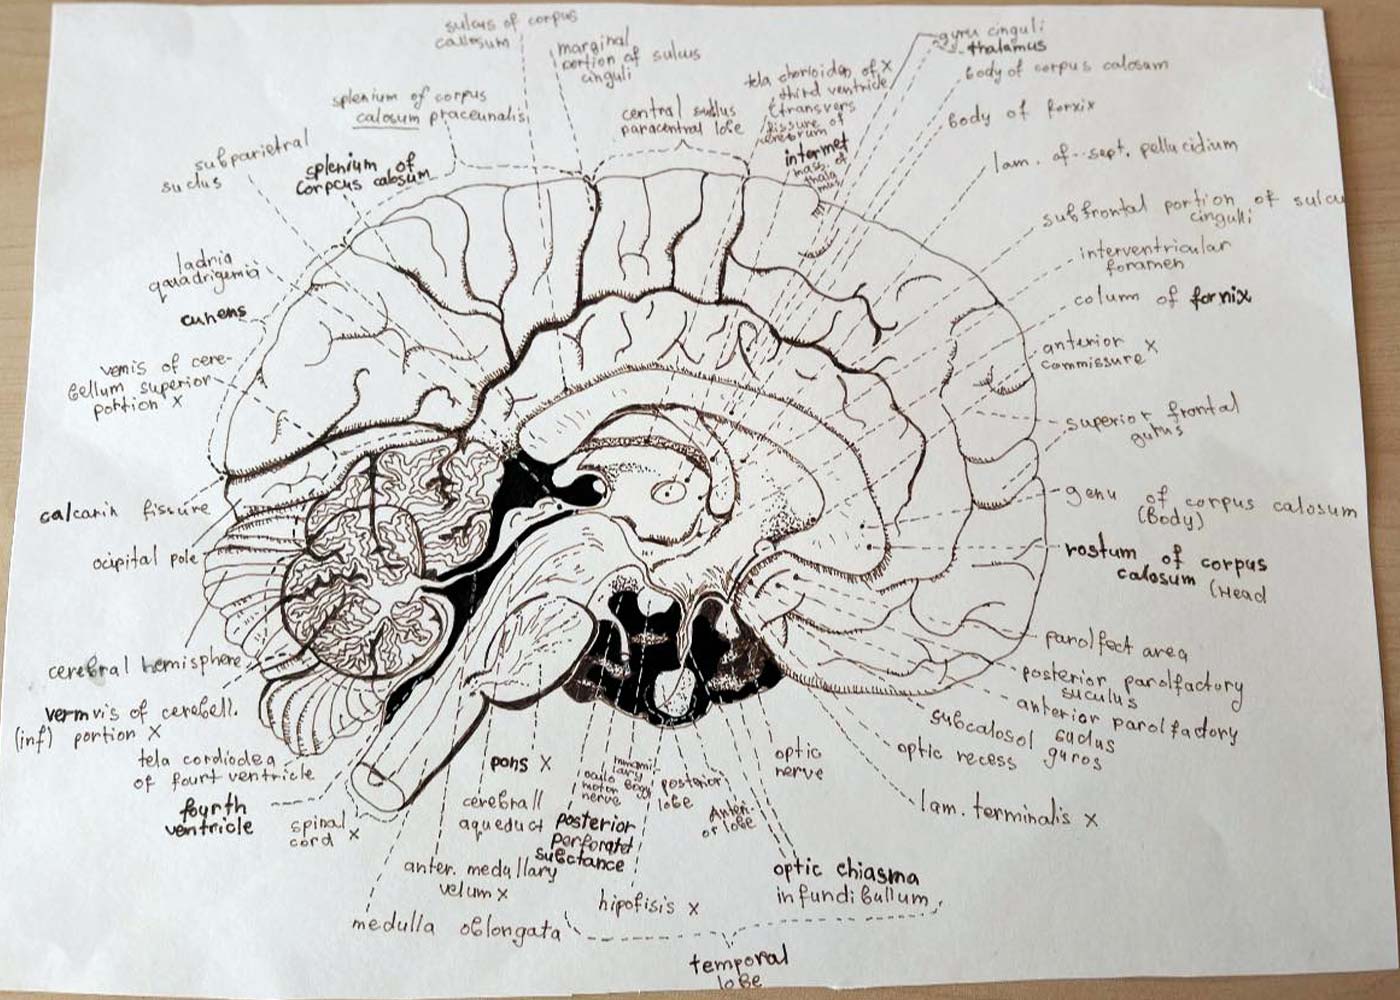 sulcus of corpus
callosum
marginal
portion of sulcus
cinguli
splenium of corpus
calosum praecunalis
central sudlus
paracentral lobe
tela chorioidea of x
third ventricle
(transvers
fissure of
cerebrum
intermet
mass. of
thala
mus
gyru cinguli
thalamus
body of corpus calosum
body of fornix
lam. of sept. pellucidium
subfrontal portion of sulcu
cingulli
interventricular
foramen
colum of fornix
anterior x
commissure
superior frontal
gurus
genu of corpus calosum
(Body)
rostum of corpus
calosum (Head
parolfect area
posterior parolfactory
suculus
anterior parolfactory
suclus
subcalosol guros
optic recess
lam. terminalis x
subparietral
suclus
splenium of
corpcus calosum
ladnia
quadrigenia
cuhens
vemis of cere-
bellum superior
portion x
calcarin fissure
ocipital pole
cerebral hemisphere
vermvis of cerebell.
(inf) portion x
tela cordiodea
of fourt ventricle
fourth
ventricle
spinal
cord x
pons x
cerebrall
aqueduct
anter. medullary
velum x
medulla oblongata
oculo
motor
nerve
mammil-
lary
body
posterior
perforated
substance
hipofisis x
posterior
lobe
Anteri-
or lobe
optic
nerve
optic chiasma
infundibullum
temporal
lobe